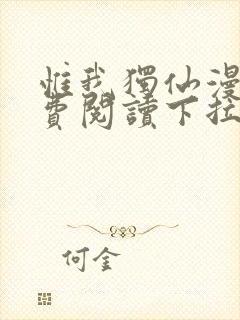 惟我獨仙漫
費閱讀下拉
何金